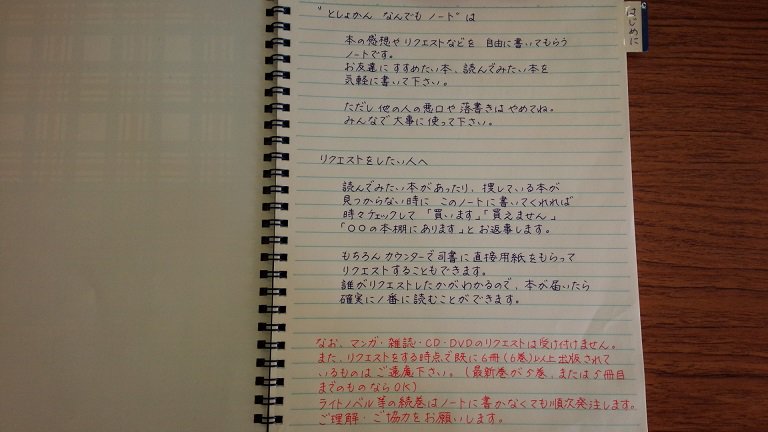 はじめに
"としょかん なんでも ノート"は
本の感想やリクエストなどを 自由に書いてもらう
ノートです。
お友達に すすめたい本、読んでみたい本を
気軽に書いて下さい。
ただし 他の人の悪口や 落書きは やめてね。
みんなで 大事に使って下さい。
リクエストをしたい人へ
読んでみたい本があったり、捜している本が
見つからない時に このノートに書いてくれれば
時々チェックして 「買います」「買えません」
「〇〇の本棚にあります」とお返事します。
もちろんカウンターで司書に直接用紙をもらって
リクエストすることもできます。
誰がリクエストしたかがわかるので、本が届いたら
確実に1番に読むことができます。
なお、マンガ・雑誌・CD・DVDのリクエストは受け付けません。
また、リクエストをする時点で既に6冊(6巻)以上出版されて
いるものは ご遠慮下さい。(最新巻が5巻、または5冊目
までのものならOK)
ライトノベル等の続巻はノートに書かなくても順次発注します。
ご理解・ご協力をお願いします。